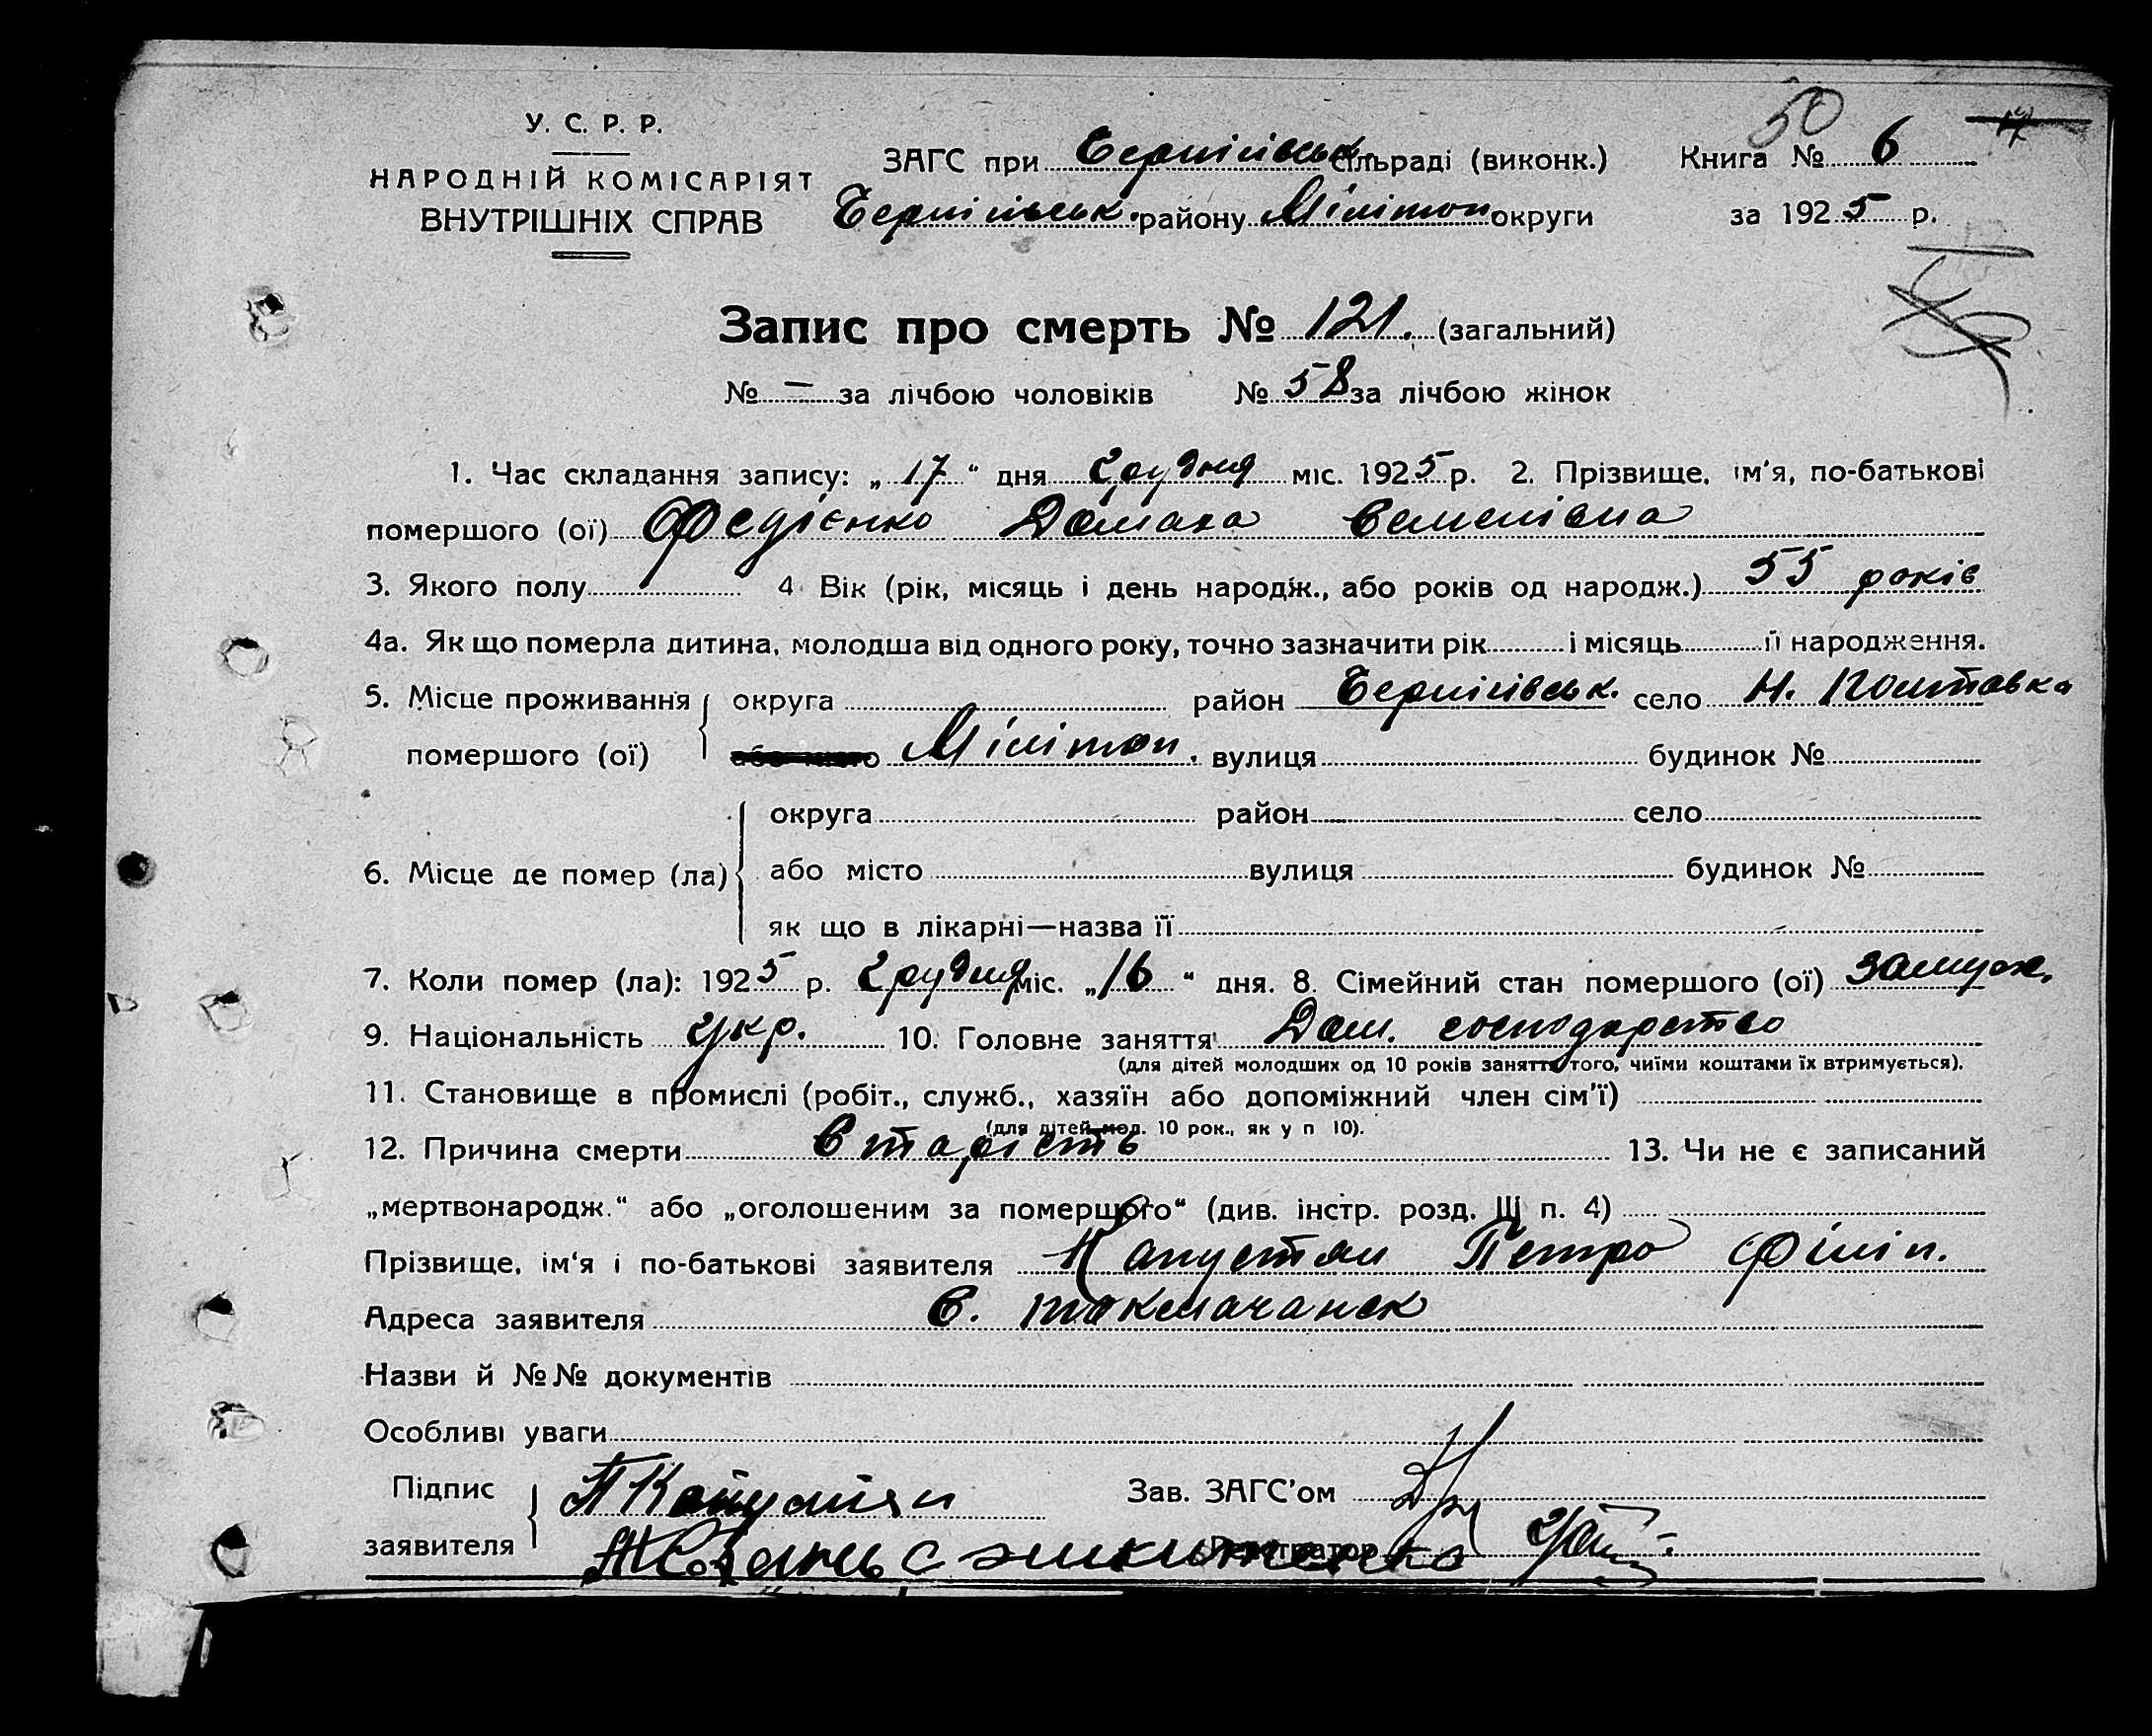 50
У. С. Р. Р.
НАРОДНІЙ КОМІСАРІЯТ
ВНУТРІШНІХ СПРАВ
ЗАГС при Чернігівськ. сільраді (виконк.) Книга № 6
Чернігівськ. району Мілітоп. округи за 1925 р.
Запис про смерть № 121. (загальний)
№ — за лічбою чоловіків № 58 за лічбою жінок
1. Час складання запису: „17“ дня грудня міс. 1925 р. 2. Прізвище, ім'я, по-батькові
помершого (ої) Федієнко Домаха Семенівна
3. Якого полу 4 Вік (рік, місяць і день народж., або років од народж.) 55 років
4а. Як що померла дитина, молодша від одного року, точно зазначити рік і місяць її народження.
5. Місце проживання округа район Чернігівськ. село Н. Полтавка
помершого (ої) або місто Мілітоп. вулиця будинок №
округа район село
6. Місце де помер (ла) або місто вулиця будинок №
як що в лікарні—назва її
7. Коли помер (ла): 1925 р. грудня міс. „16“ дня. 8. Сімейний стан помершого (ої) замуж.
9. Національність укр. 10. Головне заняття Дом. господарство
(для дітей молодших од 10 років заняття того, чиїми коштами їх втримується).
11. Становище в промислі (робіт., служб., хазяїн або допоміжний член сім'ї)
(для дітей мол. 10 рок., як у п 10).
12. Причина смерти Старість 13. Чи не є записаний
„мертвонародж.“ або „оголошеним за помершого“ (див. інстр. розд. III п. 4)
Прізвище, ім'я і по-батькові заявителя Капустян Петро Філіп.
Адреса заявителя С. Токмачанск
Назви й №№ документів
Особливі уваги
Підпис П Капустян Зав. ЗАГС'ом
заявителя Регистратор